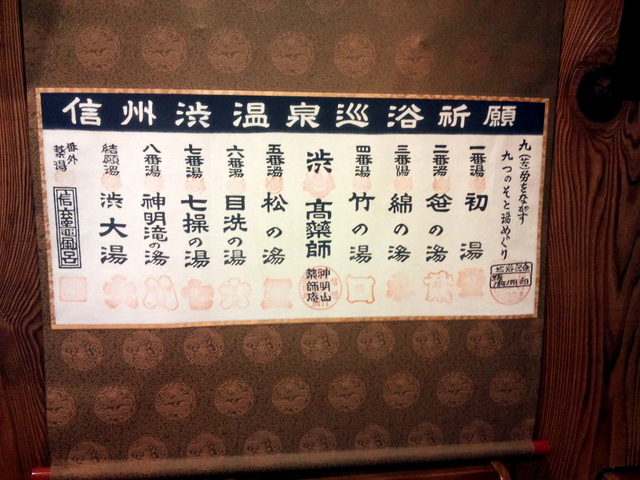 信州渋温泉巡浴祈願
九(苦)労をながす
九つのそと湯めぐり
一番湯 初湯
二番湯 笹の湯
三番湯 綿の湯
四番湯 竹の湯
渋高薬師
神明山
薬師庵
五番湯 松の湯
六番湯 目洗の湯
七番湯 七操の湯
八番湯 神明滝の湯
結願湯 渋大湯
番外
薬湯
信楽風呂